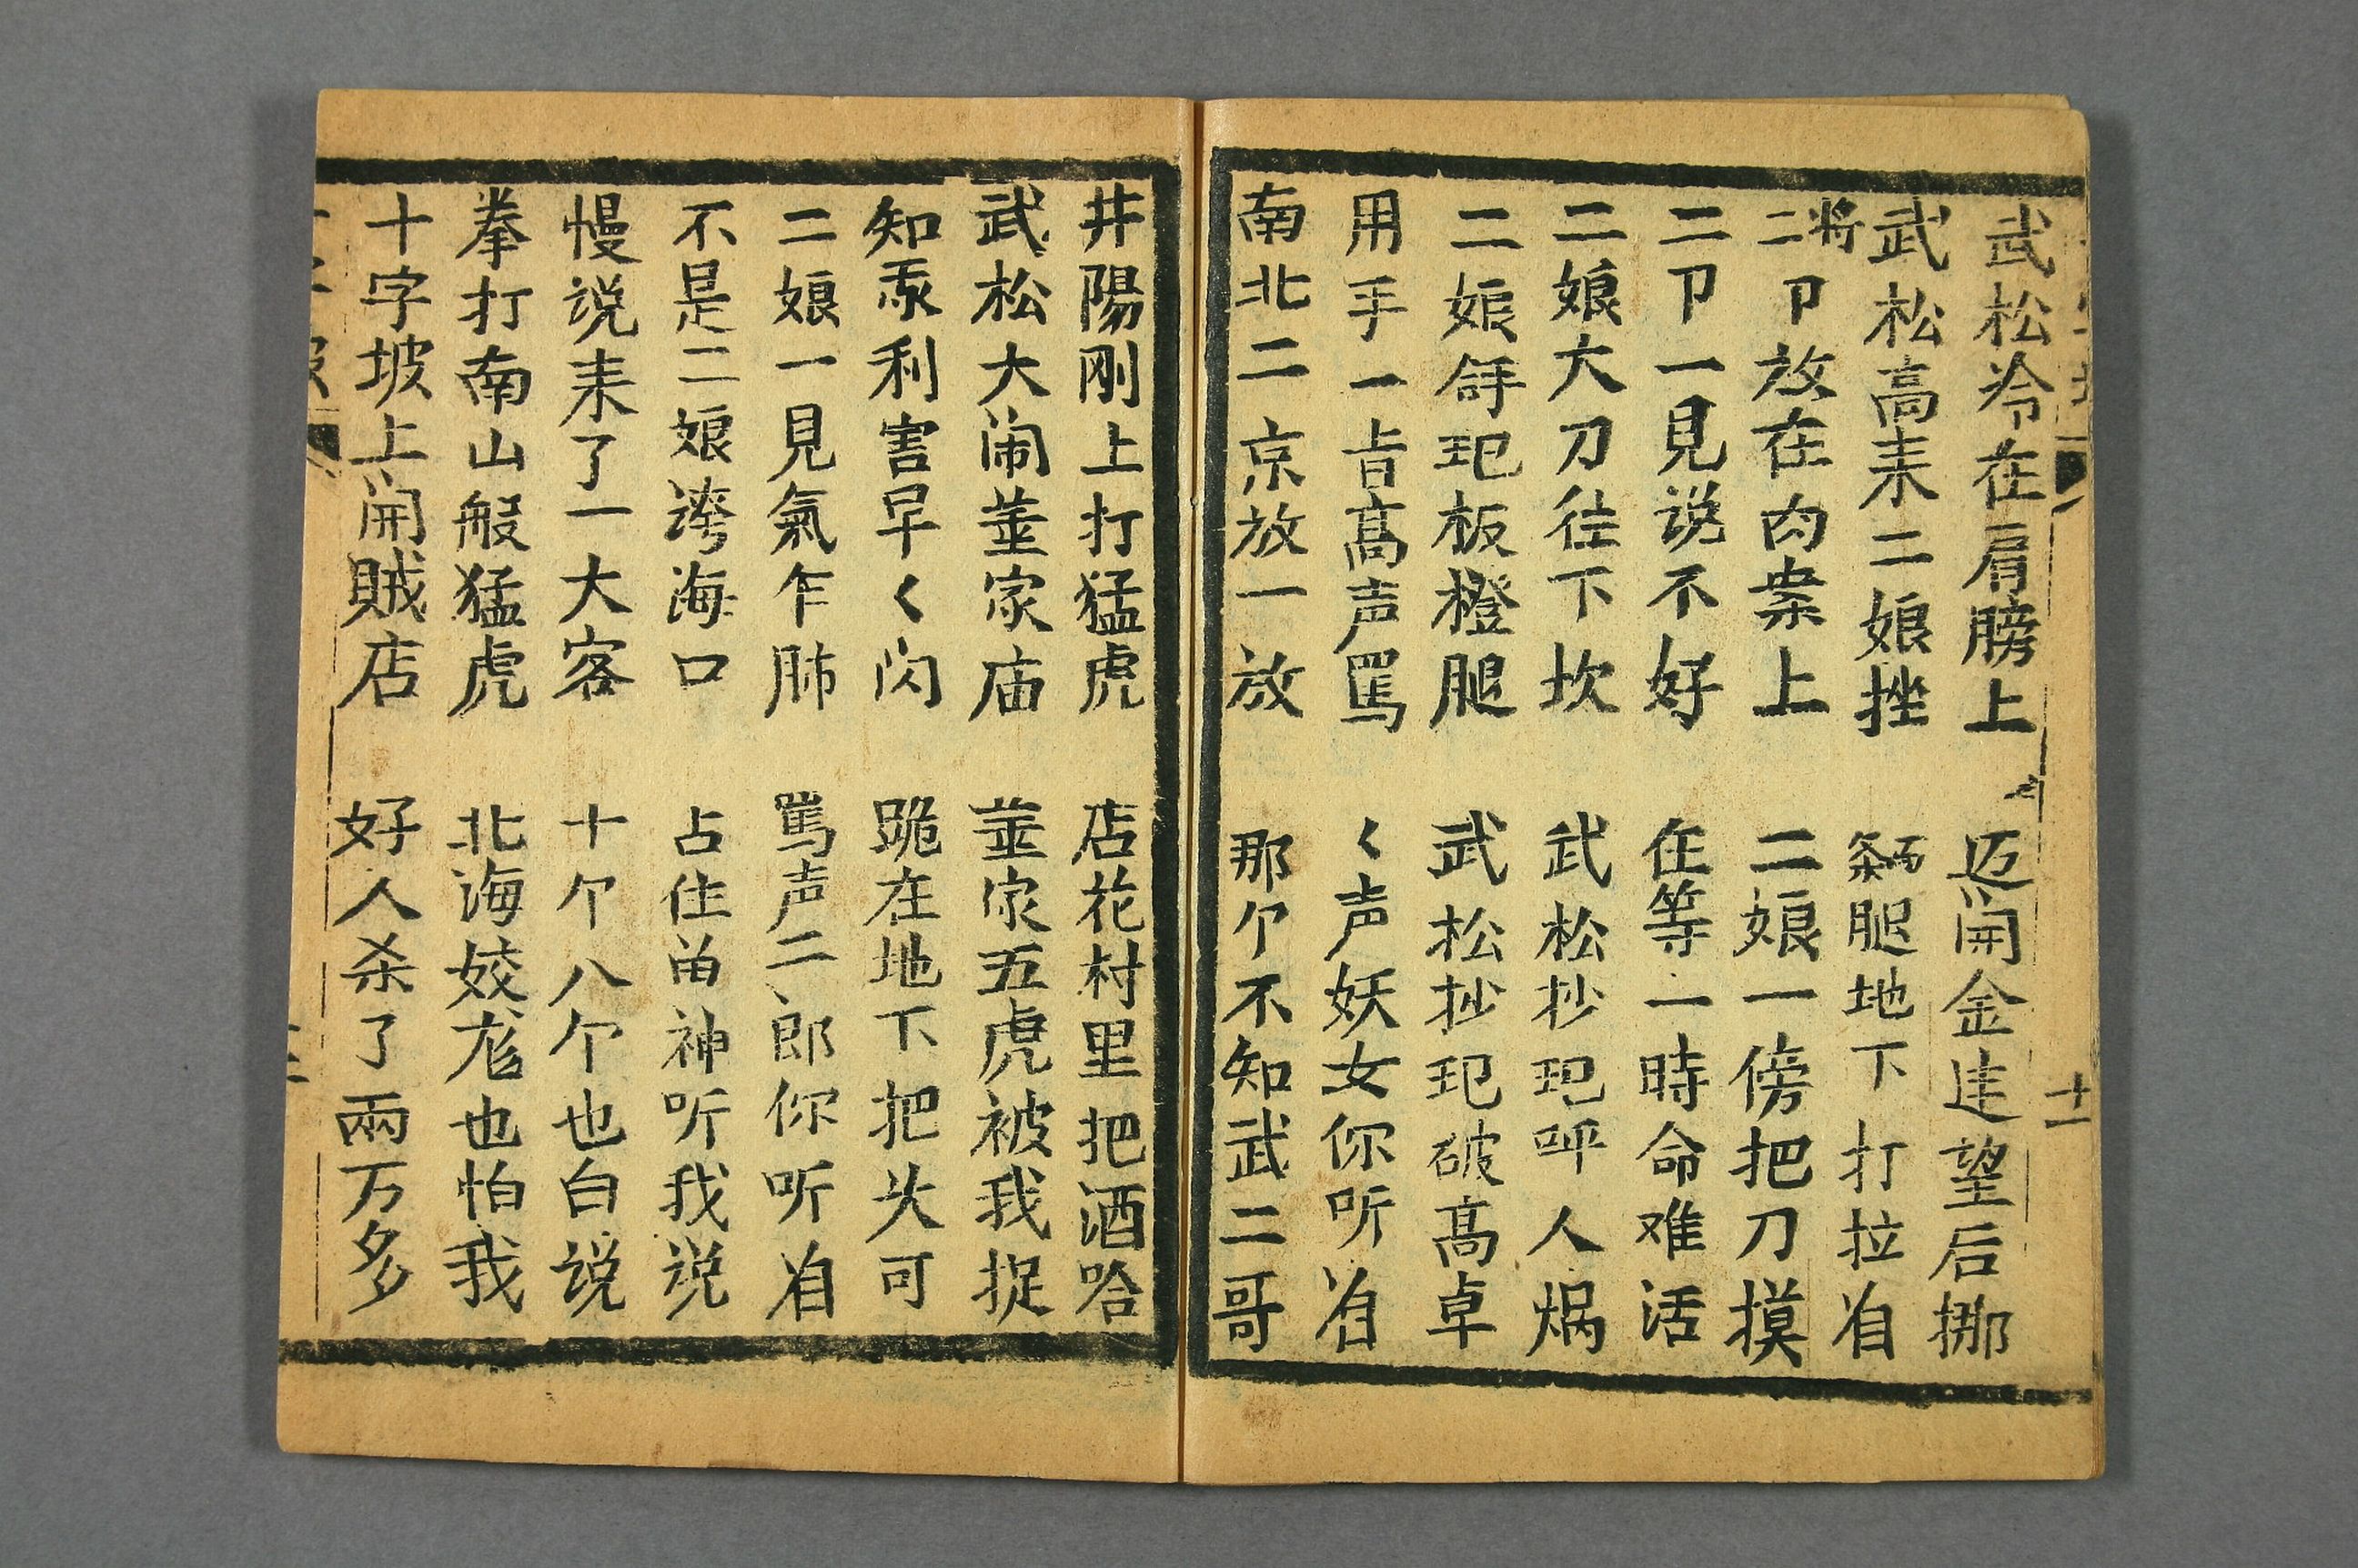 武松冷在肩膀上　迈開金莲望后挪
武松高耒二娘挫　条石腿地下打拉着
将二卩放在肉案上　二娘一傍把刀摸
二卩一見说不好　在等一時命难活
二娘大刀往下坎　武松抄玘呯人焬
二娘舒玘板橙腿　武松抄玘破高卓
用手一旨髙声骂　く声妖女你听着
南北二京放一放　那个不知武二哥
十一
井陽刚上打猛虎　店花村里把酒哈
武松大闹董家庙　董家五虎被我捉
知我利害早く闪　跪在地下把头可
二娘一見氣乍肺　骂声二郎你听着
不是二娘誇海口　占住苗神听我说
慢说耒了一大客　十个八个也白说
拳打南山般猛虎　北海姣龙也怕我
十字坡上開賊店　好人杀了兩万多